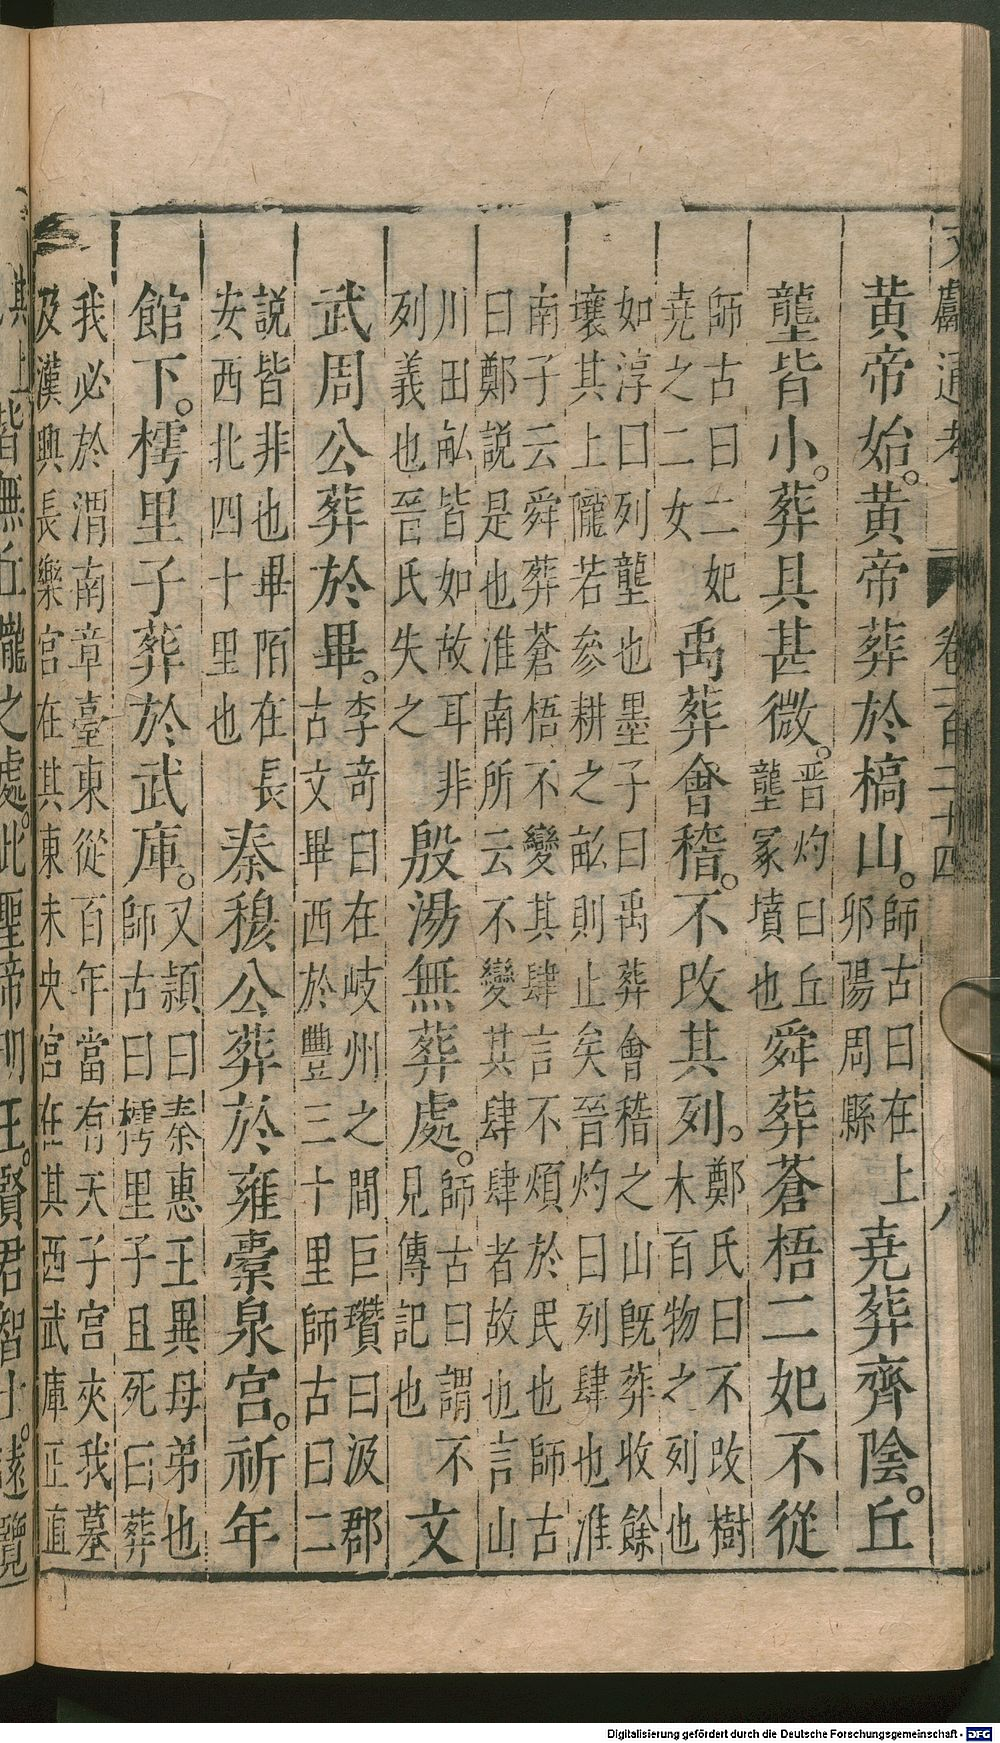 文獻通考 卷一百二十四 八
黃帝始。黃帝葬於橋山。師古曰在上郡陽周縣堯葬齊陰。丘
壟皆小。葬具甚微。晋灼曰丘壟冢墳也舜葬蒼梧二妃不從
師古曰二妃堯之二女禹葬會稽。不改其列。鄭氏曰不改樹木百物之列也
如淳曰列壟也墨子曰禹葬會稽之山既葬收餘
壤其上隴若參耕之畝則止矣晉灼曰列肆也淮
南子云舜葬蒼梧不變其肆言不煩於民也師古
曰鄭説是也淮南所云不變其肆肆者故也言山
川田畝皆如故耳非
列義也晉氏失之
殷湯無葬處。師古曰謂不見傳記也文
武周公葬於畢。李竒曰在岐州之間巨瓚曰汲郡
古文畢西於豐三十里師古曰二
説皆非也畢陌在長
安西北四十里也
秦穆公葬於雍橐泉宮。祈年
館下。樗里子葬於武庫。又潁曰秦惠王異母弟也
師古曰樗里子且死曰葬
我必於渭南章臺東從百年當有天子宮夾我墓
及漢興長樂宮在其東未央宮在其西武庫正直
其上皆無丘隴之處。此聖帝明王。賢君智士。遠覽
Digitalisierung gefördert durch die Deutsche Forschungsgemeinschaft - DFG